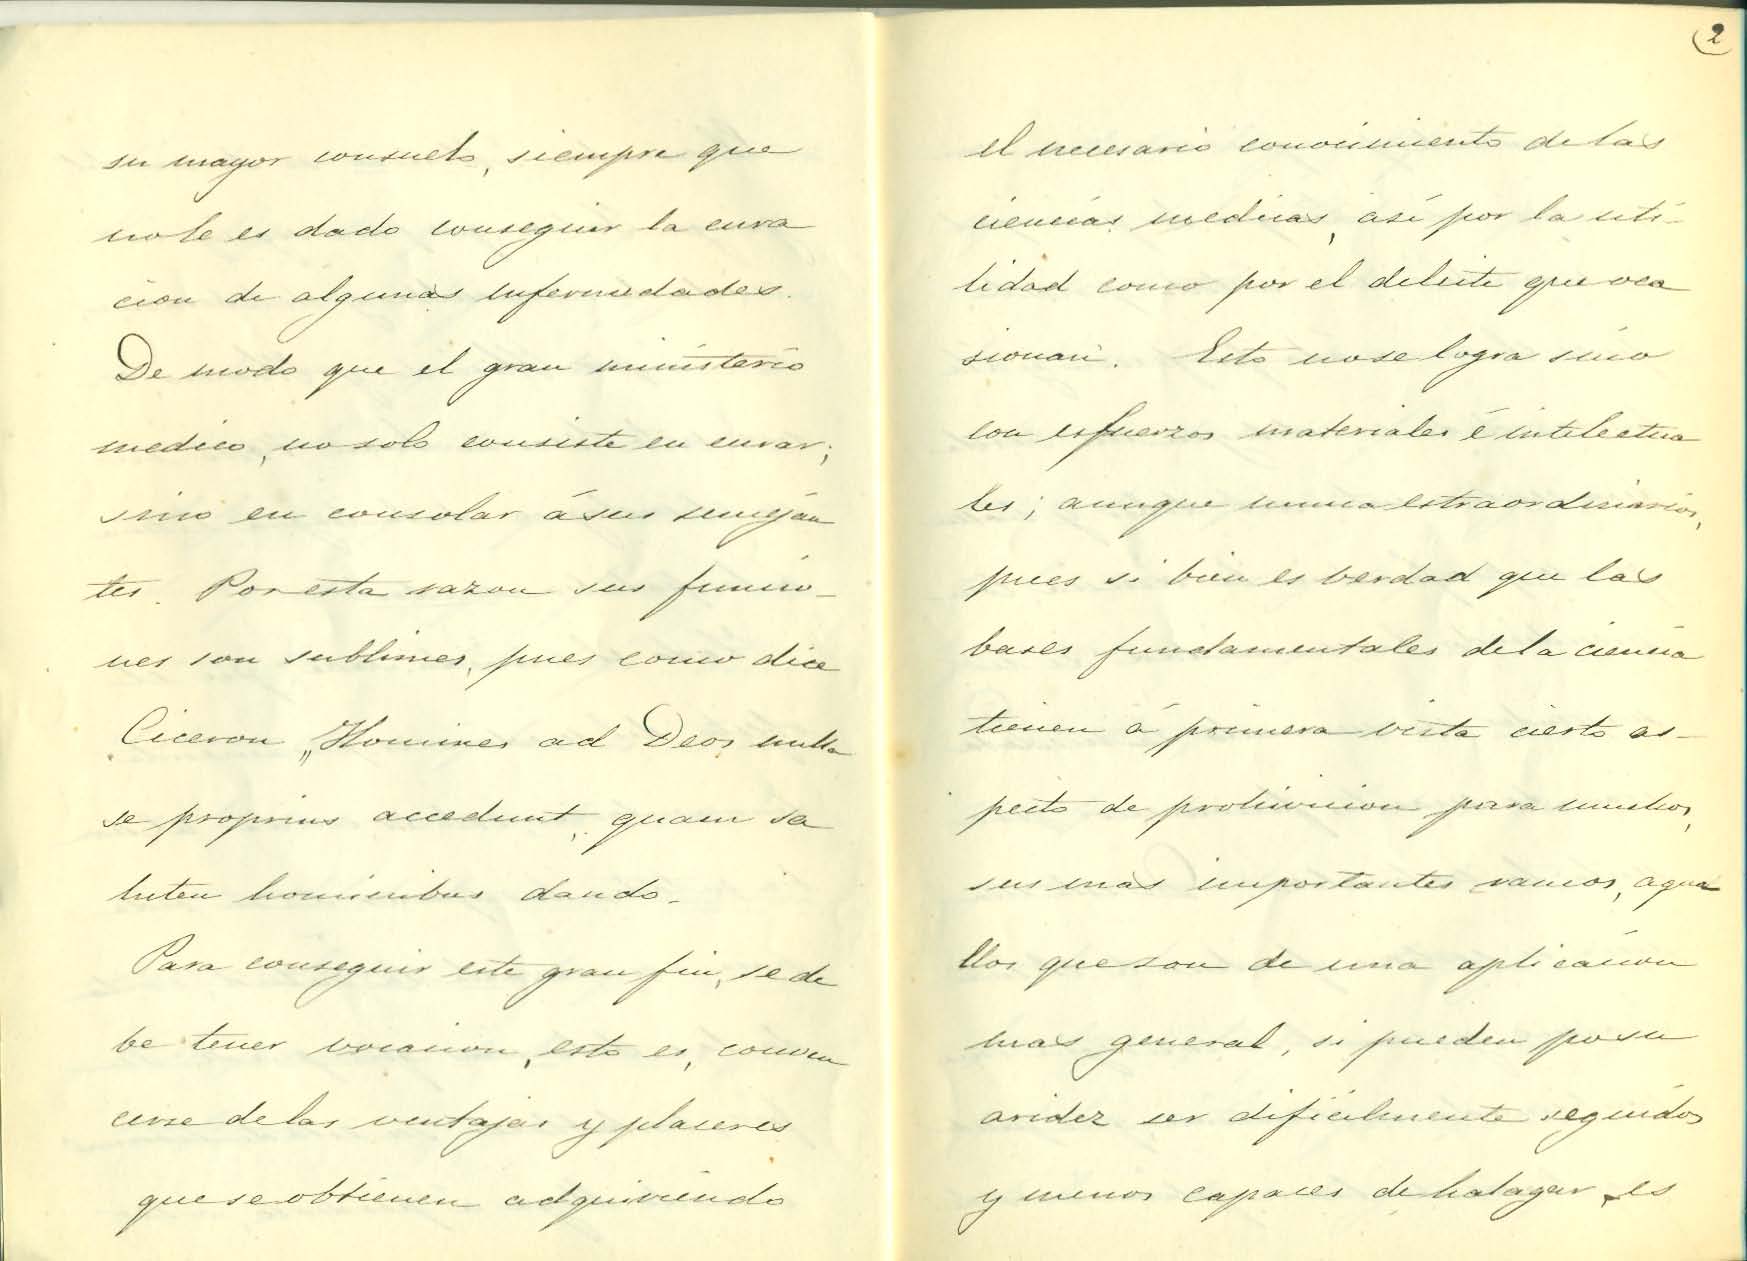 su mayor consuelo, siempre que
no le es dado conseguir la cura
cion de algunas enfermedades.
De modo que el gran ministerio
medico, no solo consiste en curar;
sino en consolar á sus semejan
tes. Por esta razon sus funcio-
nes son sublimes, pues como dice
Ciceron „Homines ad Deos nulla
se proprius accedunt, quam sa
luten hominibus dando.
Para conseguir este gran fin, se de
be tener vocacion, esto es, conven
cerse de las ventajas y placeres
que se obtienen adquiriendo
2
el necesario conocimiento de las
ciencias medicas, así por la uti-
lidad como por el deleite que oca
sionan. Esto no se logra sino
con esfuerzos materiales é intelectua
les; aunque nunca estraordinarios,
pues si bien es verdad que las
bases fundamentales de la ciencia
tienen á primera vista cierto as-
pecto de prohivicion para muchos,
sus mas importantes ramos, aque
llos que son de una aplicacion
mas general, si pueden po su
aridez ser dificilmente seguidos
y menos capaces de halagar, es